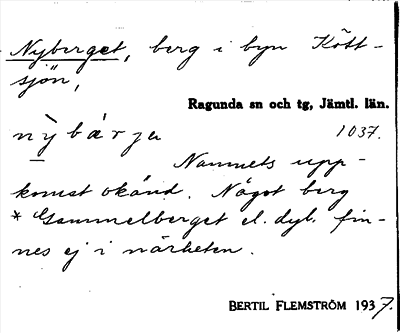 Nyberget, berg i byn Kött-
sjön,
Ragunda sn och tg, Jämtl. län.
nỳbárja 1037.
Namnets upp-
komst okänd. Något berg
* Gammelberget el. dyl. fin-
nes ej i närheten.
BERTIL FLEMSTRÖM 1937.